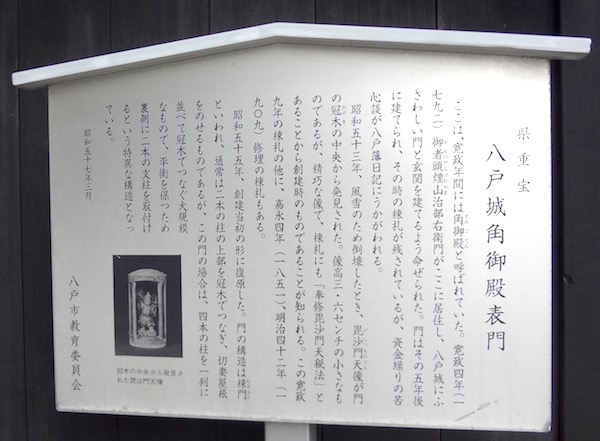 県重宝
八戸城角御殿表門
ここは、寛政年間には角御殿と呼ばれていた。寛政四年（一
七九二）御者頭煙山治部右衛門がここに居住し、八戸城にふ
さわしい門と玄関を建てるよう命ぜられた。門はその五年後
に建てられ、その時の棟札が残されているが、資金繰りの苦
心談が八戸藩日記にうかがわれる。
昭和五十三年、風雪のため倒壊したとき、毘沙門天像が門
の冠木の中央から発見された。像高三・六センチの小さなも
のであるが、精巧な像で、棟札にも「奉修毘沙門天秘法」と
あることから創建時のものであることが知られる。この寛政
九年の棟札の他に、嘉永四年（一八五一）、明治四十二年（一
九〇九）修理の棟札もある。
昭和五十五年、創建当初の形に復原した。門の構造は棟門
といわれ、通常は二本の柱の上部を冠木でつなぎ、切妻屋根
をのせるものであるが、この門の場合は、四本の柱を一列に
並べて冠木でつなぐ大規模
なもので、平衡を保つため
裏側に二本の支柱を取付け
るという特異な構造となっ
ている。
昭和五十七年三月
八戸市教育委員会
冠木の中央から発見さ
れた毘沙門天像